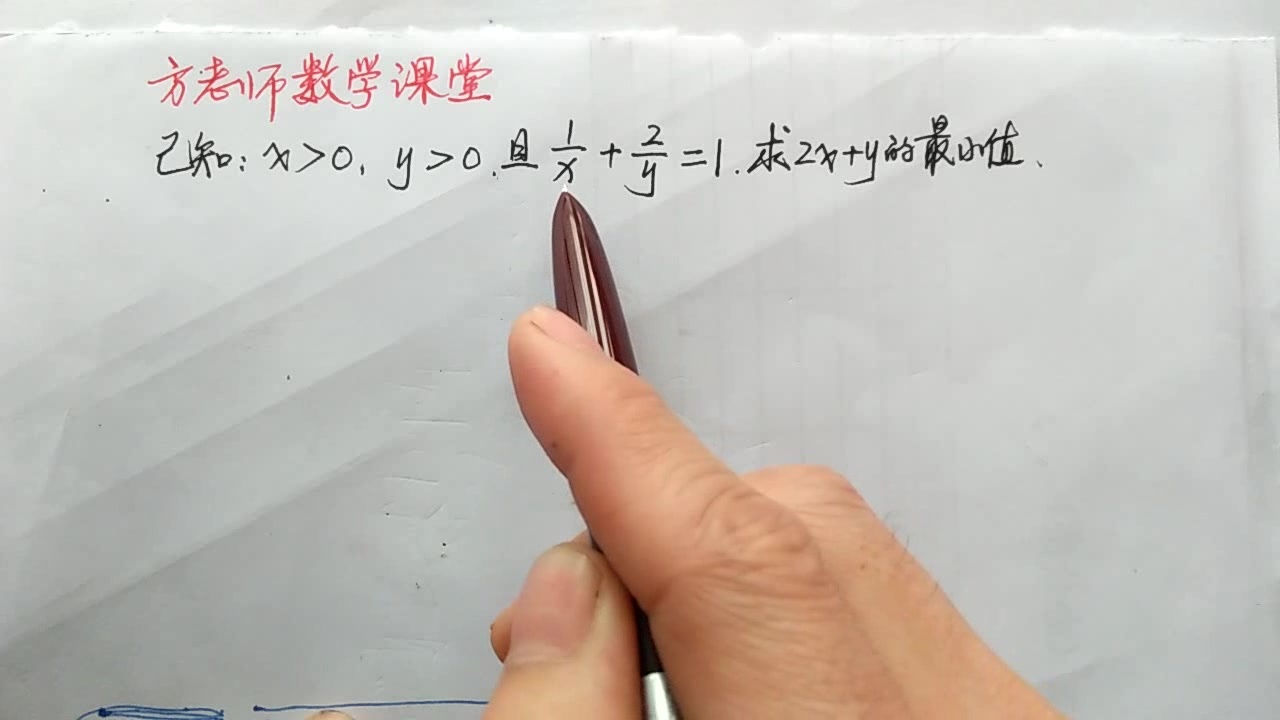 方老师数学课堂
已知：x>0，y>0，且1/x+2/y=1．求2x+y的最小值、